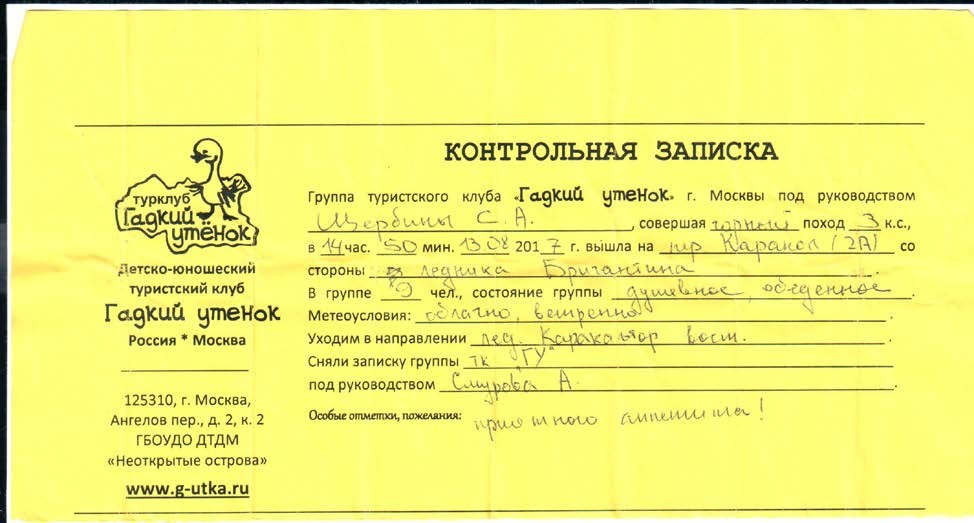 турклуб
Гадкий
утёнок
Детско-юношеский
туристский клуб
Гадкий утенок
Россия * Москва
125310, г. Москва,
Ангелов пер., д. 2, к. 2
ГБОУДО ДТДМ
«Неоткрытые острова»
www.g-utka.ru
КОНТРОЛЬНАЯ ЗАПИСКА
Группа туристского клуба «Гадкий утенок» г. Москвы под руководством
Щербины С. А., совершая горный поход 3 к.с.,
в 14 час. 50 мин. 13 08 2017 г. вышла на пер Каракол (2А) со
стороны ледника Бригантина.
В группе 9 чел., состояние группы душевное, обеденное.
Метеоусловия: облачно, ветренно.
Уходим в направлении лед. вост.
Сняли записку группы тк "ГУ"
под руководством Смурова А.
Особые отметки, пожелания: приятного аппетита!